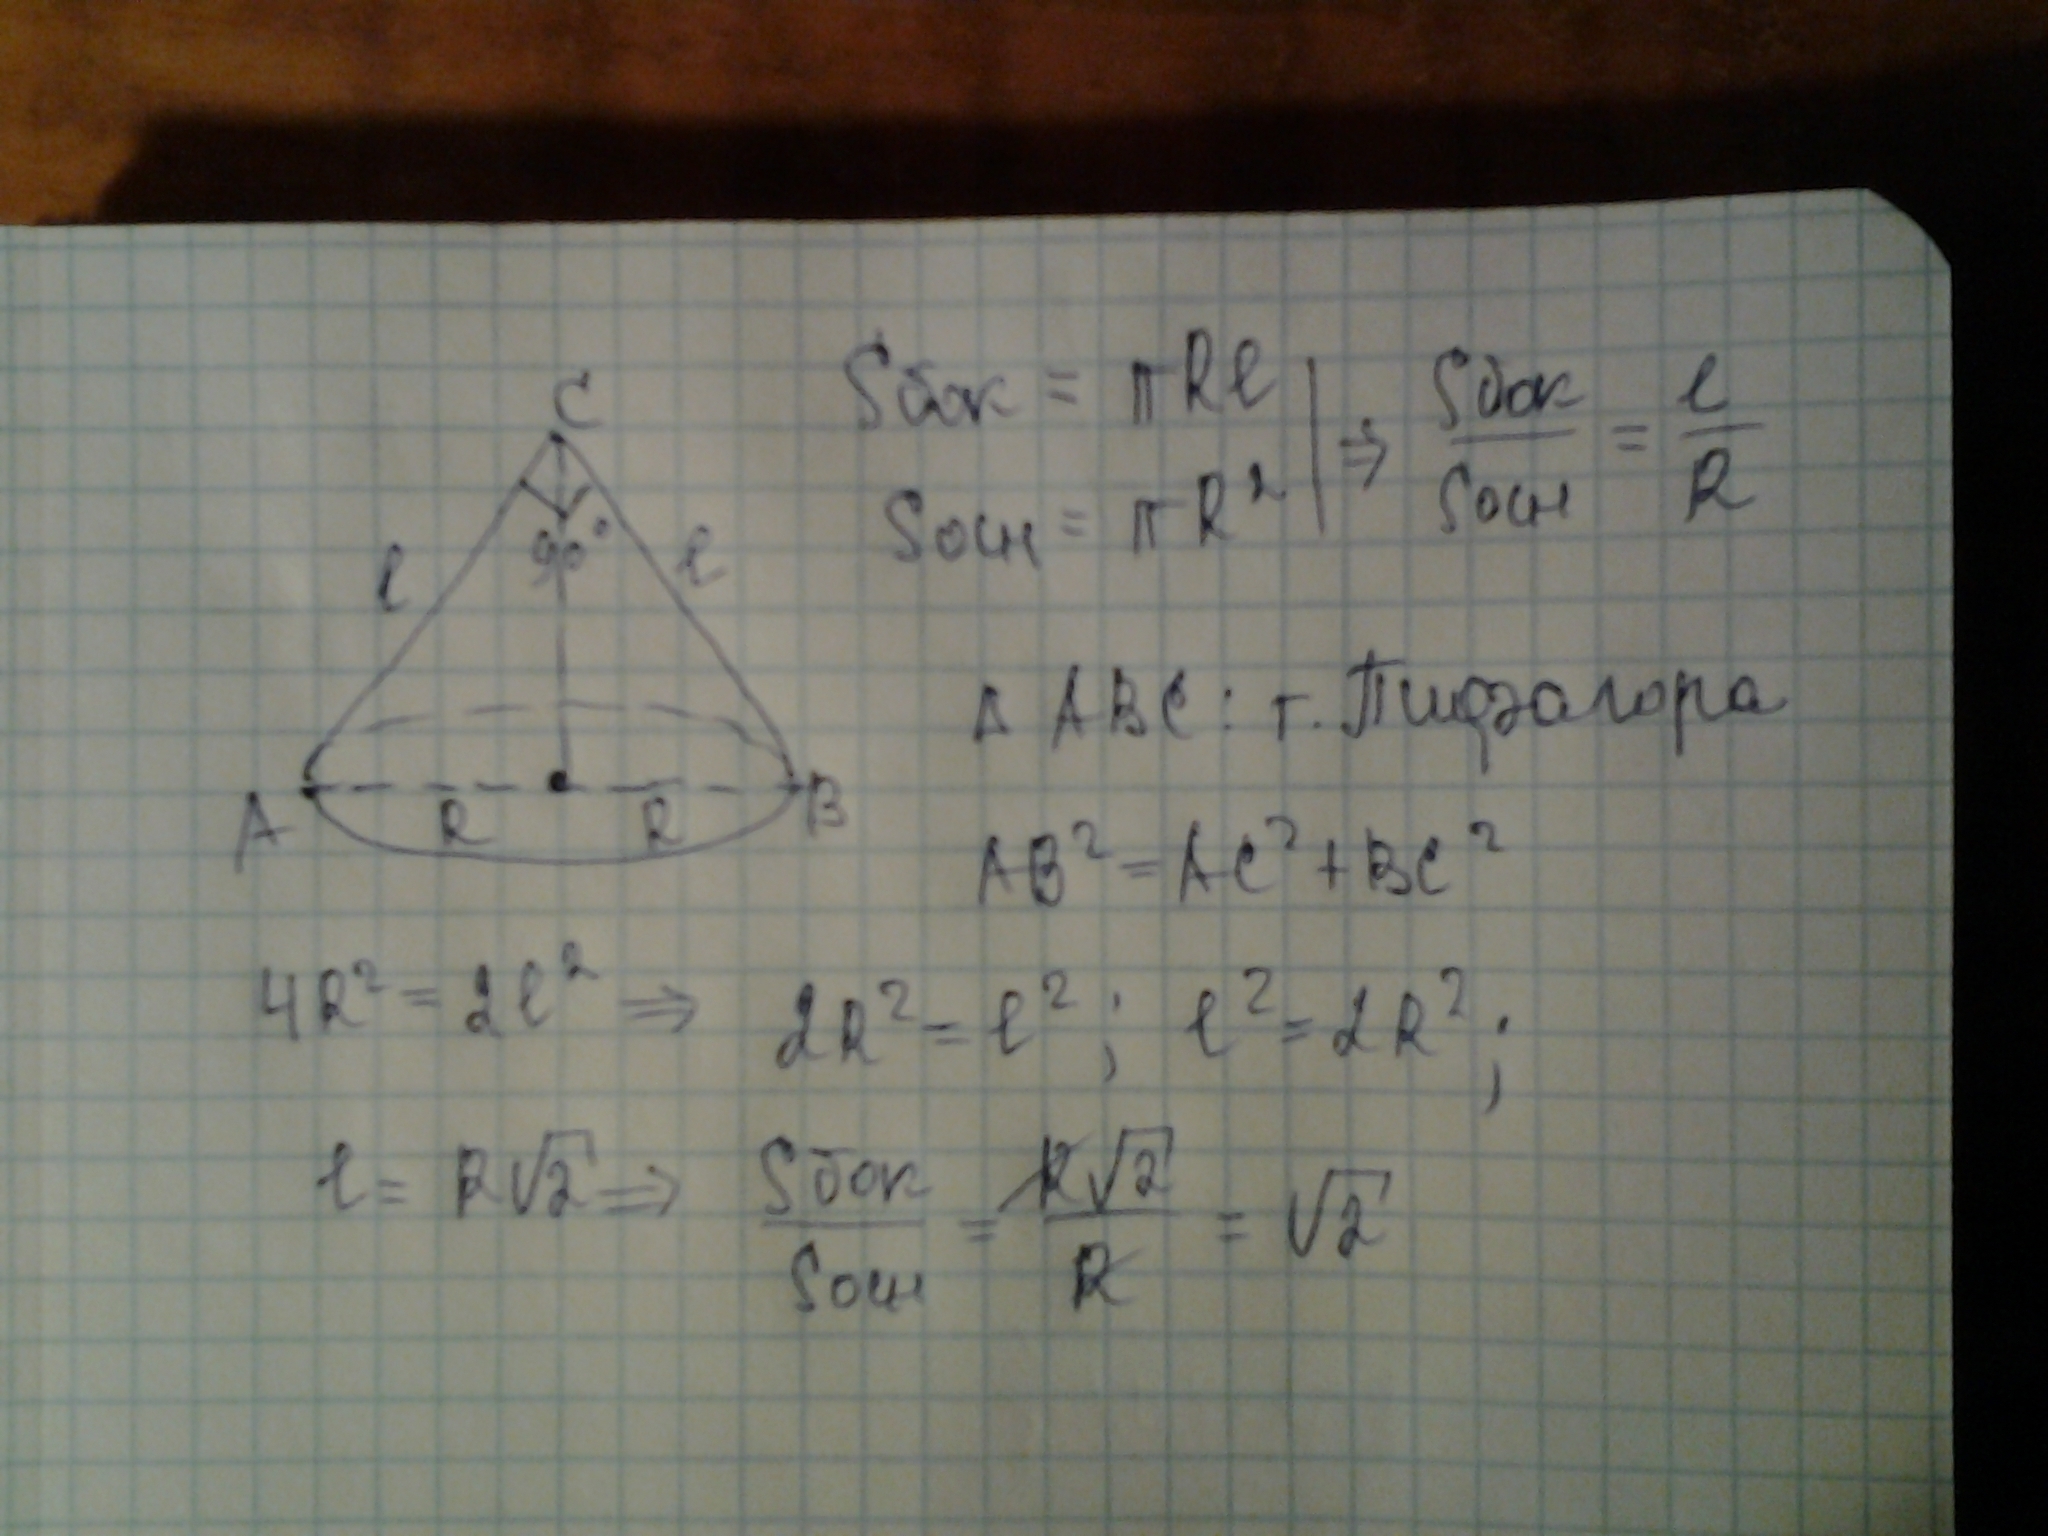 C
90°
l
l
A
R
R
B
Sбок = πRl | ⇒ Sбок/Sосн = l/R
Sосн = πR²
Δ ABC: т. Пифагора
AB² = AC² + BC²
4R² = 2l² ⇒ 2R² = l²; l² = 2R²;
l = R√2 ⇒ Sбок/Sосн = R√2/R = √2